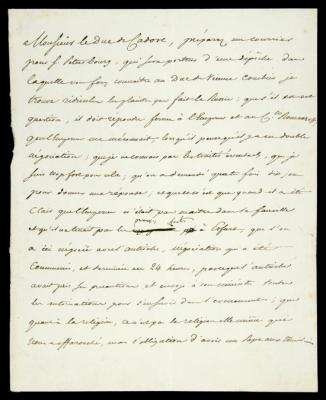 Monsieur le Duc de Cadore, préparez un courrier
pour St Petersbourg, qui sera porteur d'une dépêche dans
laquelle vous ferez connaître au Duc de Vicence combien je
trouve ridicules les plaintes que fait la Russie, que s'il en est
question, il doit répondre ferme à l'Empereur et au Cte Romanzoff
que l'Empereur me méconnait lorsqu'il pense qu'il y a eu double
négociation, que je ne connais pas les traités éventuels, que je
suis trop fort pour cela, qu'on a demandé quatre fois dix jours
pour donner ma réponse, et que ce n'est que quand il a été
clair que l'Empereur n'était pas maître dans sa famille
et qu'il ne tenait pas la promesse faite à Erfurt, que l'on
a ici négocié avec l'autriche, négociation qui a été
Commencée, et terminée en 24 heures, parceque l'autriche
avait pris ses précautions et envoyé à son ministre toutes
les autorisations pour s'en servir dans l'évènement; que
quant à la religion, ce n'est pas la religion elle même qui
nous a effarouché, mais l'obligation d'avoir un Pope aux thuileries